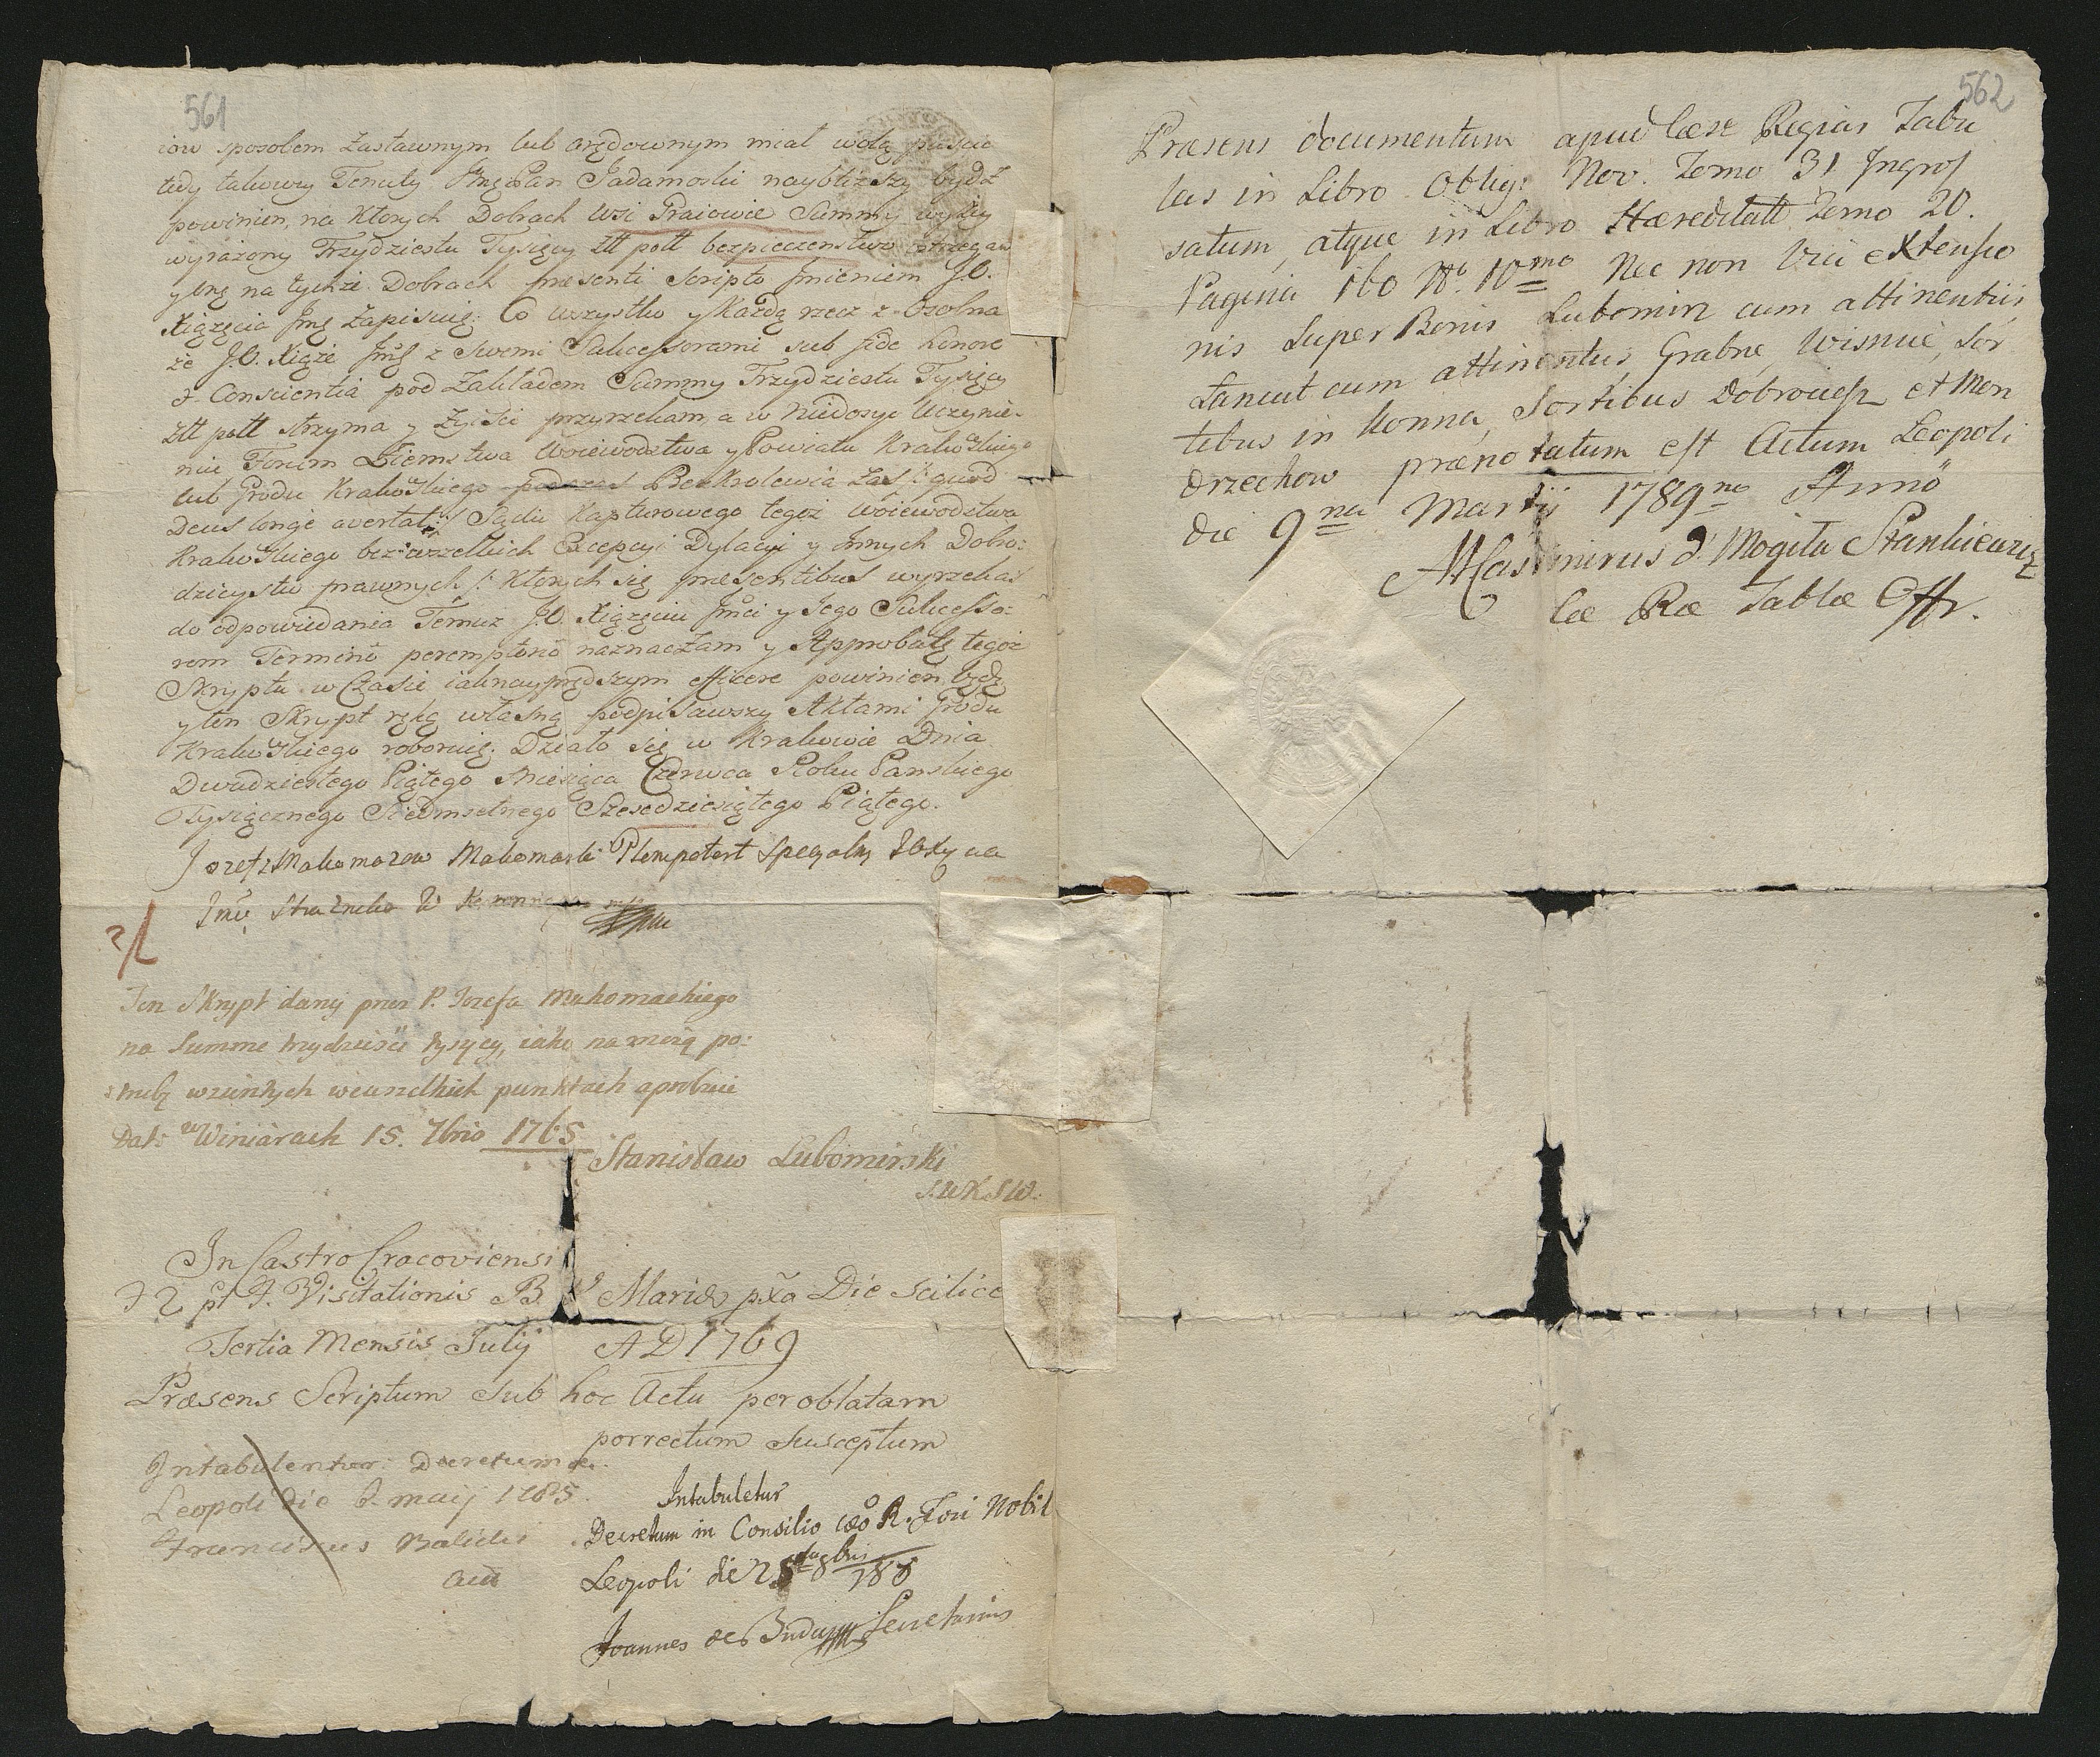 561
iow sposobem Zastawnym lub arędownym miał wolą puscic
tedy takowey Tenuty Jmć Pan Jadamoski naybliższy bydź
powinien, na ktorych Dobrach Wsi Praiowie Summy wyżey
wyrażony Trzydziestu Tysięcy Złł poll bezpieczenstwo ostrzegam
y onę na tychże Dobrach præsenti Scripto Jmieniem J.O.
Xiążęcia Jmć Zapisuię. Co wszystko y każdą rzecz z osobna
że J.O. Xiąże Jmć z Swemi Sukcessorami sub fide honore
et Conscientia pod Zakładem Summy Trzydziestu Tysięcy
Złł poll strzyma y Ziści przyrzekam, a w niedosyć Uczynie-
niu Forum Ziemstwa Woiewodztwa y Powiatu Krakowskiego
lub Grodu Krakowskiego podczas Bezkrolewia zaś /: quod
Deus longe avertat :/ Sądu Kapturowego tegoż Woiewodztwa
Krakowskiego bez wszelkich Excepcyi Dylacyi y innych Dobro-
dzieystw prawnych /: Ktorych się præsentibus wyrzekaś
do odpowiedania Temuż J.O. Xiążęciu Jmci y Jego Sukcesso-
rom Terminũ peremptoriũ naznaczam y Approbatę tegoż
Skryptu w Czasie iaknayprędszym efficere powinien będę
y ten Skrypt ręką własną podpisawszy Aktami Grodu
Krakowskiego roboruię. Działo się w Krakowie Dnia
Dwudziestego Piątego Miesiąca Czerwca Roku Panskiego
Tysiącznego Siedmsetnego Szescdziesiątego Piątego.
Jozef z Makomazow Makomaski Plenipotent Specyalny
Jmci Strażnika W Koronnego mp
Ten Skrypt dany przez P. Jozefa Makomaskiego
na Summe trzydziesci tysięcy, iako na moią po:
:trzebę wziętych we wszelkich punktach aprobuie
Dat: w Winiarach 15. 7bris 1765
Stanisław Lubomirski
S.W.K.S.W.
In Castro Cracoviensi
F 2 pt F. Visitationis B. V Mariæ pxã Die scilicet
Tertia Mensis Julij AD 1769
Præsens Scriptum sub hoc Actu per oblatam
porrectum susceptum
Intabulentur: Decretum
Leopoli die 6. maij 1785.
Franciscus
Intabuletur
Decretum in Consilio Cæo R. Fori Nobil
Leopoli
Joannes de Secretarius
562
Præsens documentum apud Cæse Regias Tabu
las in Libro Oblig: Nov. Tomo 31 Ingros
satum, atque in Libro Hæreditatt Tomo 20.
Pagina 160 No. 10mo Nec non Vici extensio
nis Super Bonis Lubomirz cum attinentiis,
Lancut cum attinentiis, Grabne, Wisnue, Sor
tibus in Konna, Sortibus Dobrociesz et Mon
drzechow prænotatum est Actum Leopoli
die 9na Martij 1789no Anno
Casimirus d' Mogila Stankiewicz
Cæ Ræ Tablæ Offr.